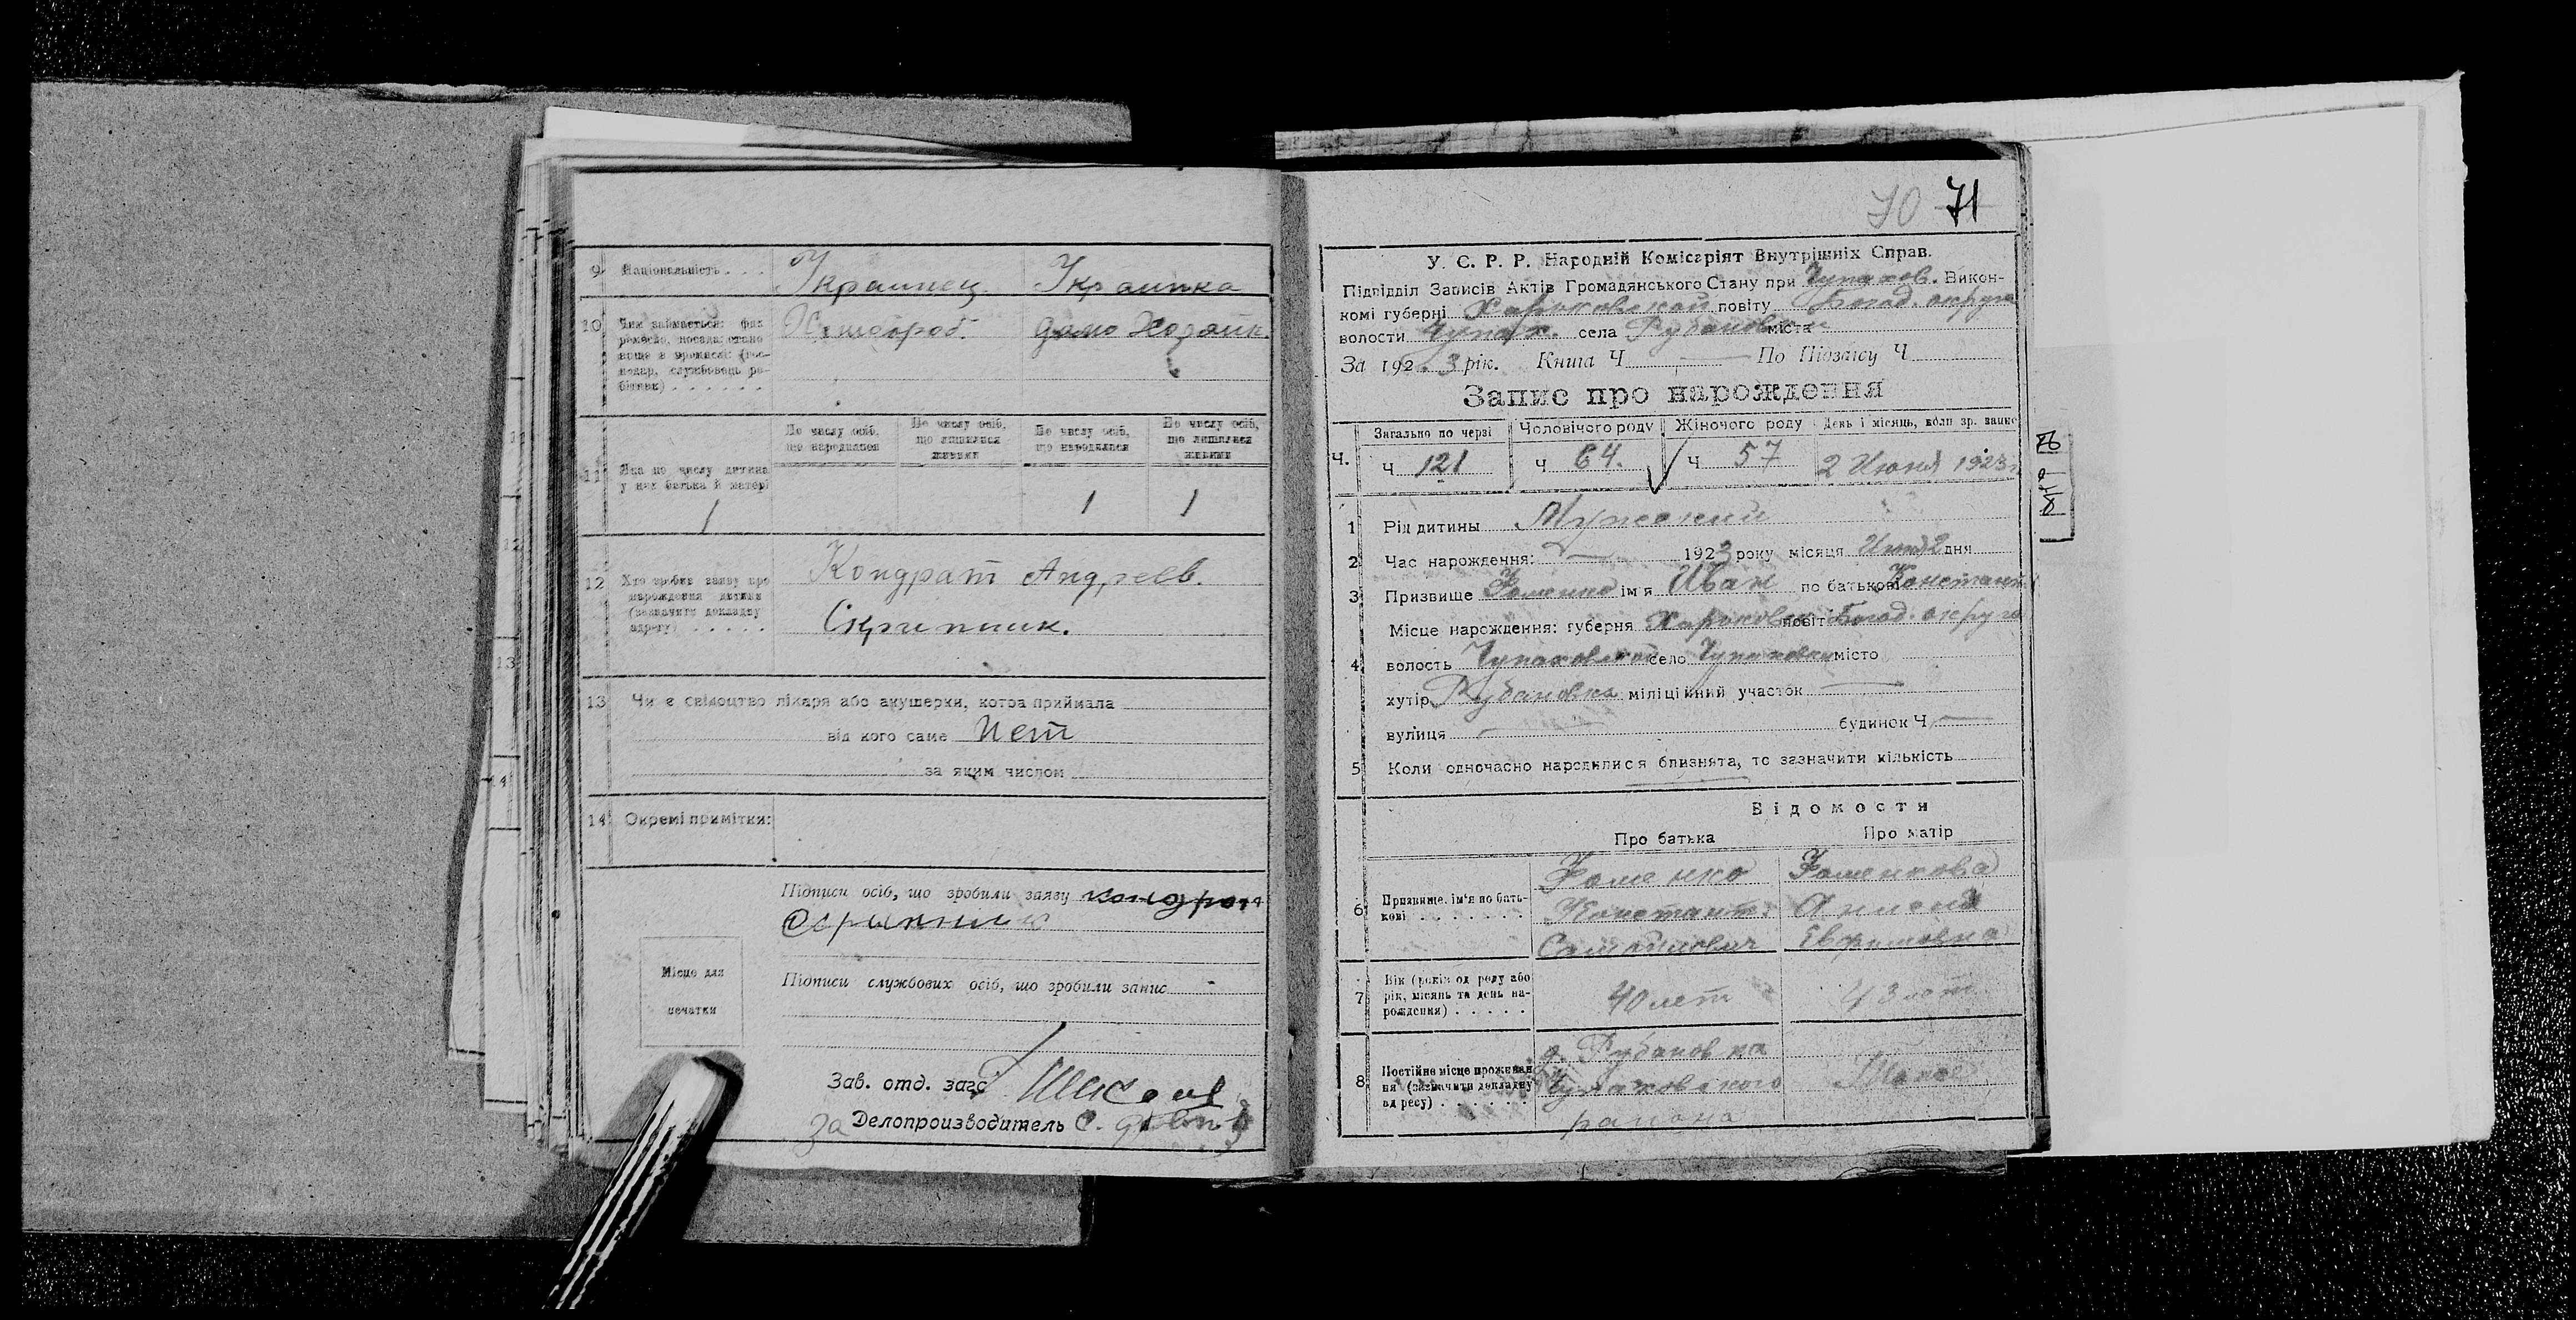 9 Національність . . . Украинец Украинка
10 Чим займається: фах
ремесло, посада, стано
вище в промислі (гос-
подар, службовець ро-
бітник) . . . . . .
Хлебороб. домо Хозяйк.
По числу осіб, що народилися
По числу осіб, що лишилися живими
По числу осіб, що народилися
По числу осіб, що лишилися живими
11 Яка по числу дитина
у них батька й матері
1 1 1
12 Хто зробив заяву про
нарождення дитини
(зазначити докладну
адресу) . . . . .
Кондрат Андреев.
Скрипник.
13 Чи є свідоцтво лікаря або акушерки, котра приймала
від кого саме Нет
за яким числом
14 Окремі примітки:
Підписи осіб, що зробили заяву Кондрат
Скрипник
Місце для
печатки
Підписи службових осіб, що зробили запис
Зав. отд. загс
За Делопроизводитель С.
70 71
У. С. Р. Р. Народній Комісаріят Внутрішніх Справ.
Підвідділ Записів Актів Громадянського Стану при Чупахов. Викон-
комі губерні Харьковской повіту Богод. округа
волости Чупах. села Рубановки міста
За 1923 рік. Книга Ч По Підзапису Ч
Запис про нарождення
Загально по черзі Чоловічого роду Жіночого роду День і місяць, коли зр. запис
Ч. Ч 121 Ч 64. Ч 57 2 Июня 1923 г
1 Рід дитины Мужский
2 Час нарождення: 1923 року місяця Июня 2 дня
3 Призвище Фоменко ім'я Иван по батькові Константин
Місце нарождення: губерня Харьковск повіт Богод. округа
4 волость Чупаховской село Чупаховки місто
хутір Рубановка міліційний участок
вулиця будинок Ч
5 Коли одночасно народилися близнята, то зазначити кількість
Відомости
Про батька Про матір
6 Призвище, ім'я по бать-
кові . . . . . . .
Фоменко Фоменкова
Констант.
Евфимовна
7 Вік (років од роду або
рік, місяць та день на-
рождення) . . . . .
40 лет 43 лет
8 Постійне місце проживан
ня (зазначити докладну
адресу) . . . . . .
д. Рубановка
Чупаховского
района